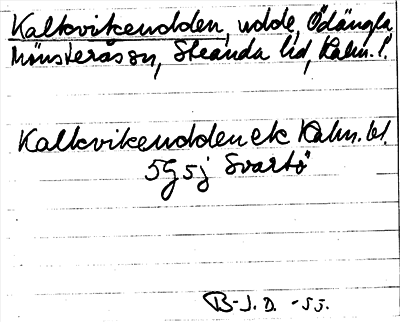 Kalkvikeudden, udde, Ödängla,
Mönsterås sn, Stranda hd, Kalm. l.
Kalkvikeudden ek Kalm. bl.
5G5j Svartö
B-J. D. -55.